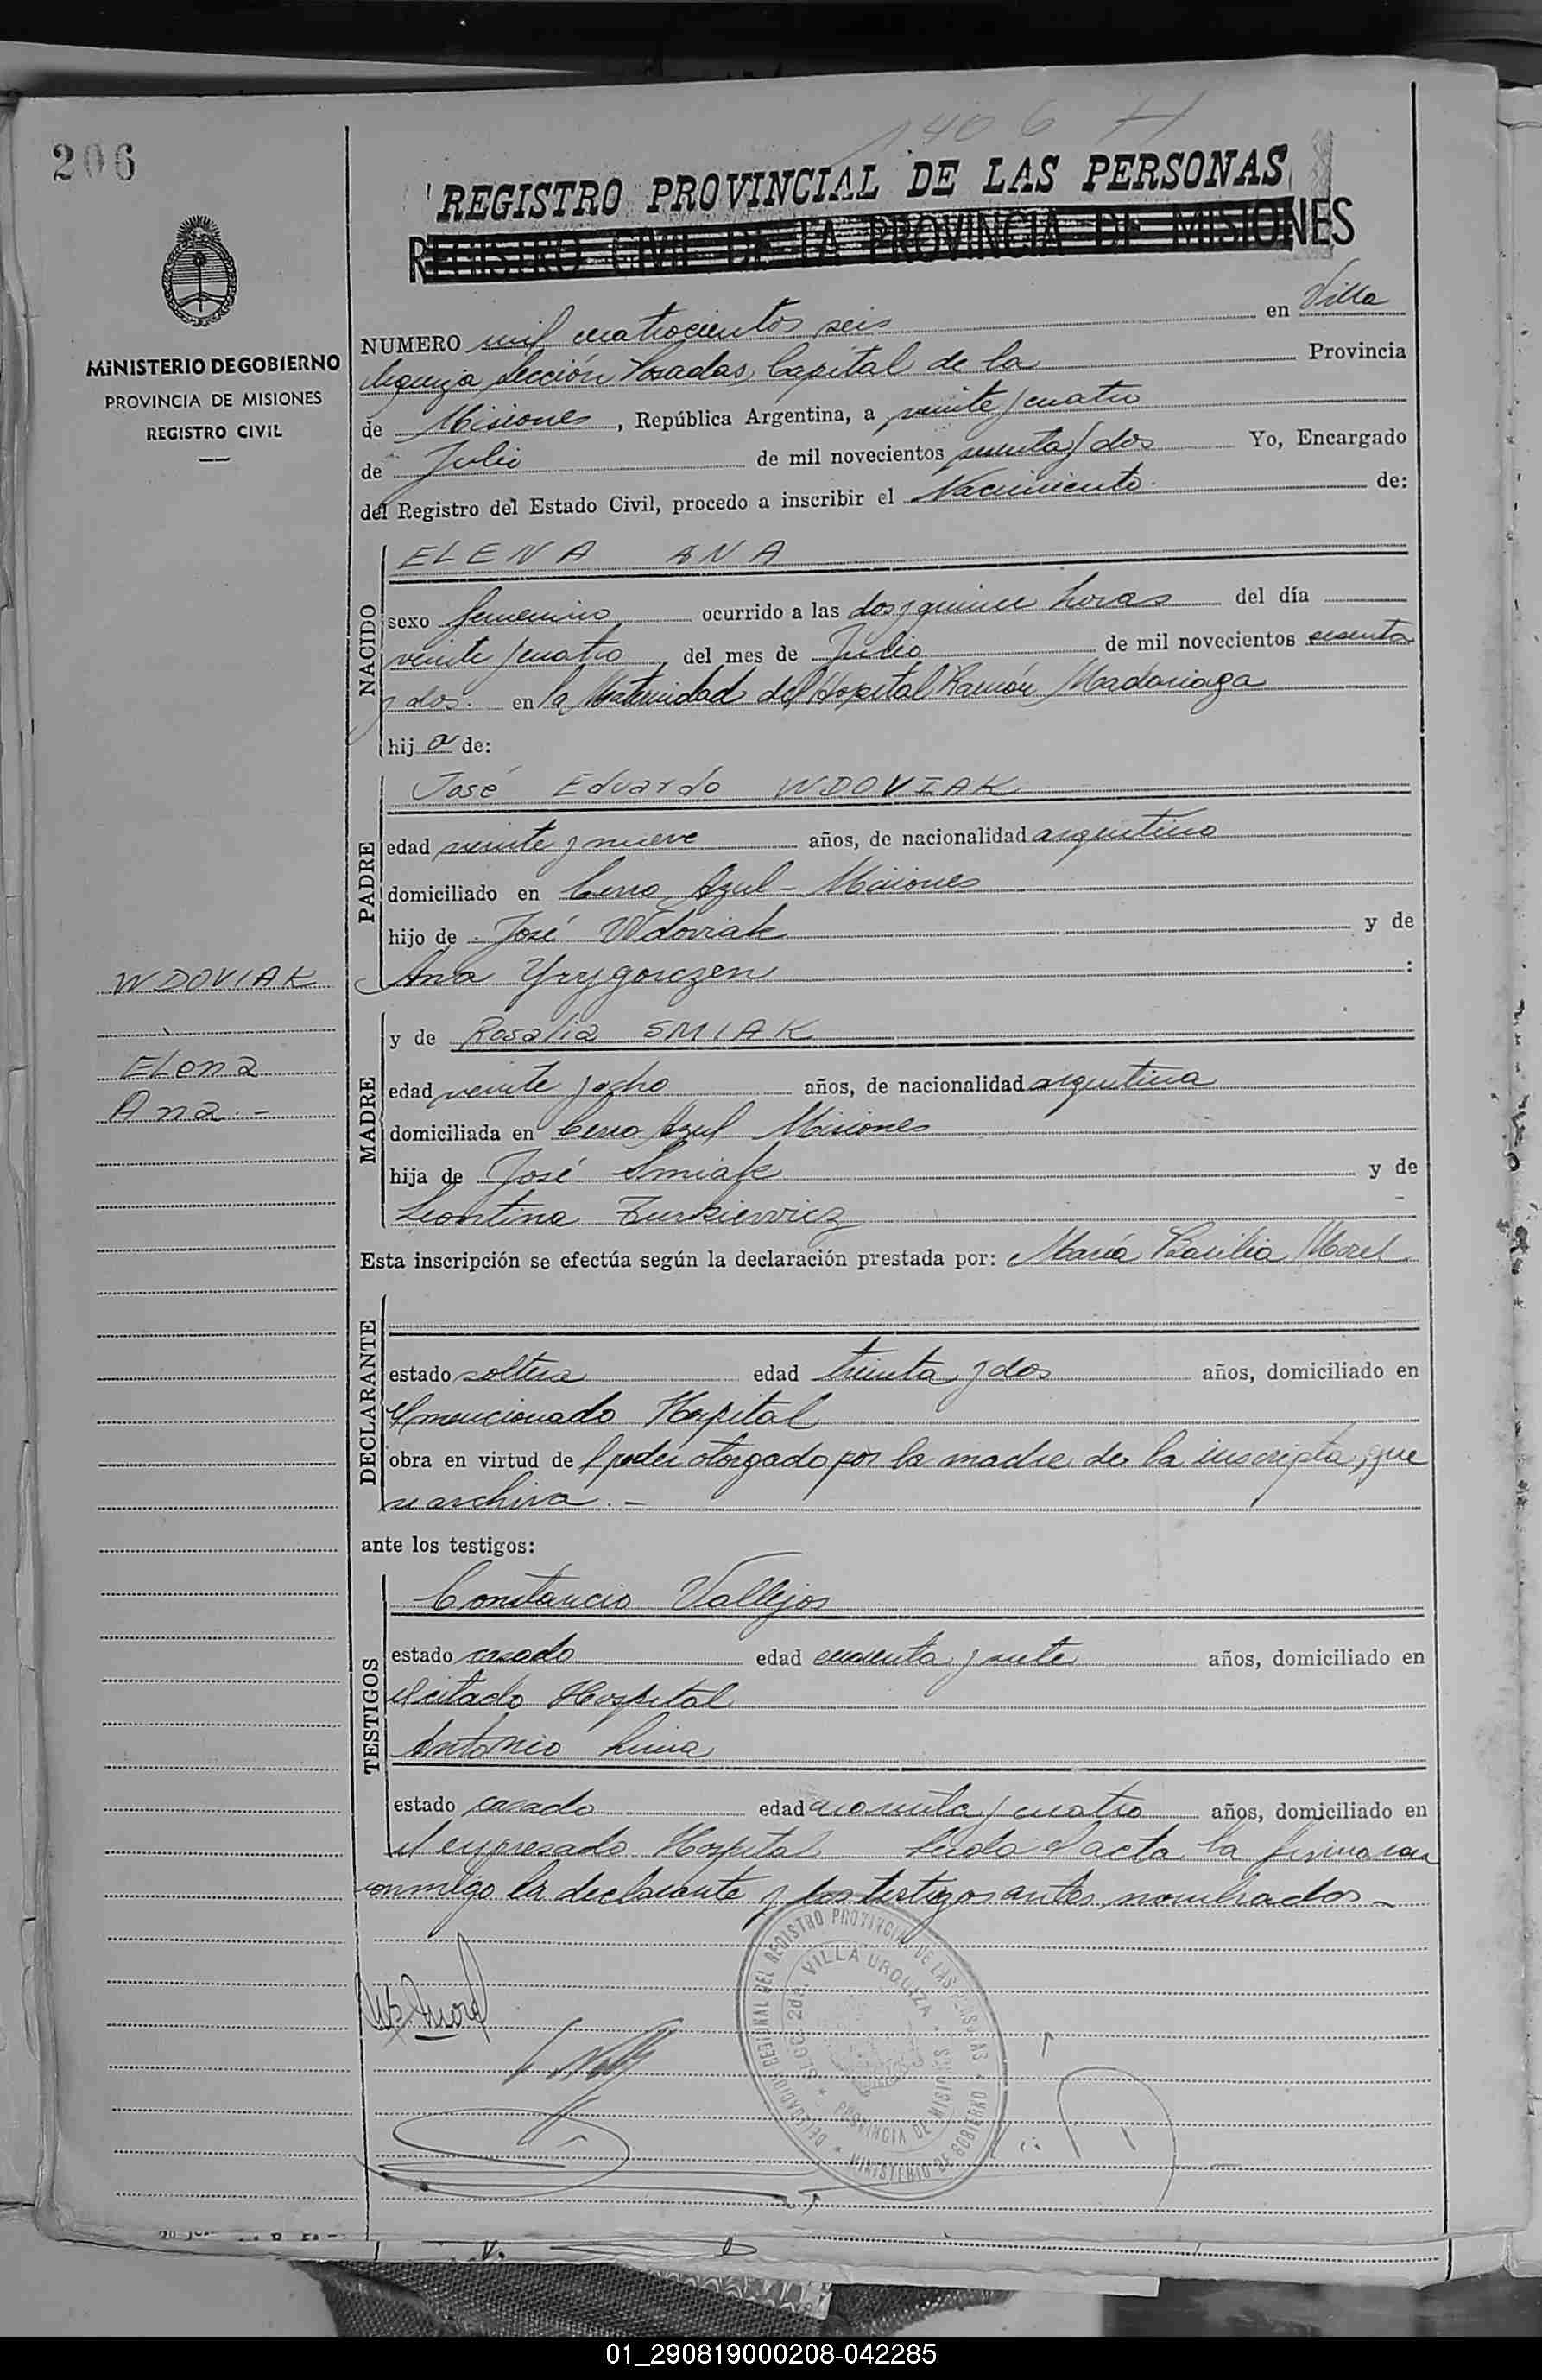 1406 H
206
REGISTRO PROVINCIAL DE LAS PERSONAS
REGISTRO CIVIL DE LA PROVINCIA DE MISIONES
MINISTERIO DE GOBIERNO
PROVINCIA DE MISIONES
REGISTRO CIVIL
NUMERO mil cuatrocientos seis en Villa
Urquiza Sección Posadas, Capital de la Provincia
de Misiones, República Argentina, a veinte y cuatro
de Julio de mil novecientos sesenta y dos Yo, Encargado
del Registro del Estado Civil, procedo a inscribir el Nacimiento. de:
NACIDO
ELENA ANA
sexo femenino ocurrido a las dos y quince horas del día
veinte y cuatro del mes de Julio de mil novecientos sesenta
y dos. en la Maternidad del Hospital Ramón Madariaga
hija de:
PADRE
José Eduardo WDOVIAK
edad veinte y nueve años, de nacionalidad argentino
domiciliado en Cerro Azul - Misiones
hijo de José Wdoviak y de
Ana Yrygorczen :
WDOVIAK
Elena
Ana.-
MADRE
y de Rosalia SMIAK
edad veinte y ocho años, de nacionalidad argentina
domiciliada en Cerro Azul Misiones
hija de José Smiak y de
Leontina Zurkievvicz
Esta inscripción se efectúa según la declaración prestada por: María Basilia Morel
DECLARANTE
estado soltera edad treinta y dos años, domiciliado en
el mencionado Hospital
obra en virtud del poder otorgado por la madre de la inscripta, que
se archiva.-
ante los testigos:
TESTIGOS
Constancio Vallejos
estado casado edad cincuenta y siete años, domiciliado en
el citado Hospital
Antonio Luna
estado casado edad cuarenta y cuatro años, domiciliado en
el expresado Hospital Leida el acta la firmaron
conmigo la declarante y los testigos antes nombrados.-
M.B. Morel
DELEGACION REGIONAL DEL REGISTRO PROVINCIAL DE LAS PERSONAS * MINISTERIO DE GOBIERNO *
SECC. 2da. VILLA URQUIZA * PROVINCIA DE MISIONES *
01_290819000208-042285